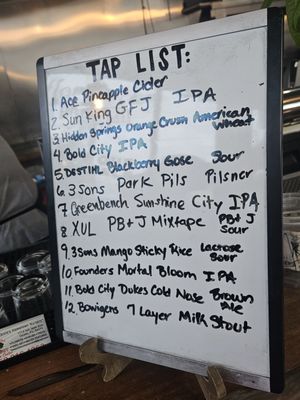 TAP LIST:
1. Ace Pineapple Cider
2. Sun King GFJ IPA
3. Hidden Springs Orange Crush American Wheat
4. Bold City IPA
5. DESTIHL Blackberry Gose Sour
6. 3 Sons Park Pils Pilsner
7. Greenbench Sunshine City IPA
8. XUL PB+J Mixtape PB+J Sour
9. 3 Sons Mango Sticky Rice Lactose Sour
10. Founders Mortal Bloom IPA
11. Bold City Dukes Cold Nose Brown Ale
12. Bowigens 7 Layer Milk Stout